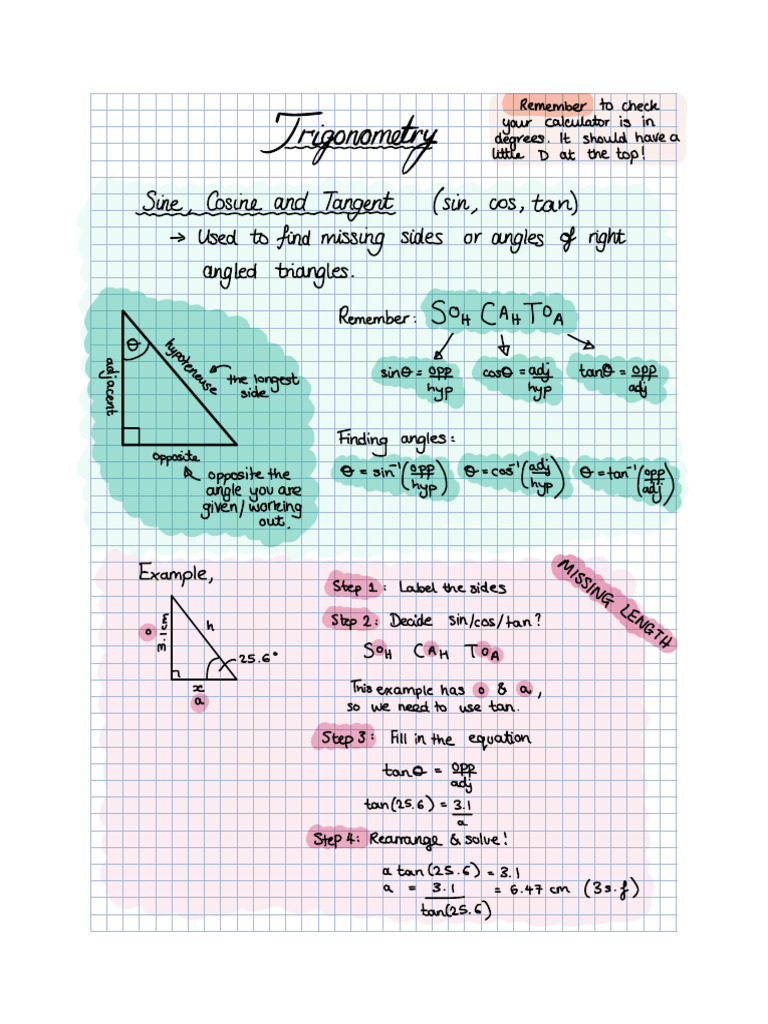 Trigonometry
Remember to check
your calculator is in
degrees. It should have a
little D at the top!
Sine, Cosine and Tangent (sin, cos, tan)
→ Used to find missing sides or angles of right
angled triangles.
θ
hypoteneuse
adjacent
opposite
the longest
side
opposite the
angle you are
given/working
out.
Remember: SOH CAH TOA
sinθ = opp/hyp cosθ = adj/hyp tanθ = opp/adj
Finding angles:
θ = sin⁻¹(opp/hyp) θ = cos⁻¹(adj/hyp) θ = tan⁻¹(opp/adj)
Example,
MISSING LENGTH
o
3.1cm
h
25.6°
x
a
Step 1: Label the sides
Step 2: Decide sin/cos/tan?
SOH CAH TOA
This example has o & a,
so we need to use tan.
Step 3: Fill in the equation
tanθ = opp/adj
tan(25.6) = 3.1/a
Step 4: Rearrange & solve!
a tan(25.6) = 3.1
a = 3.1/tan(25.6) = 6.47 cm (3s.f)